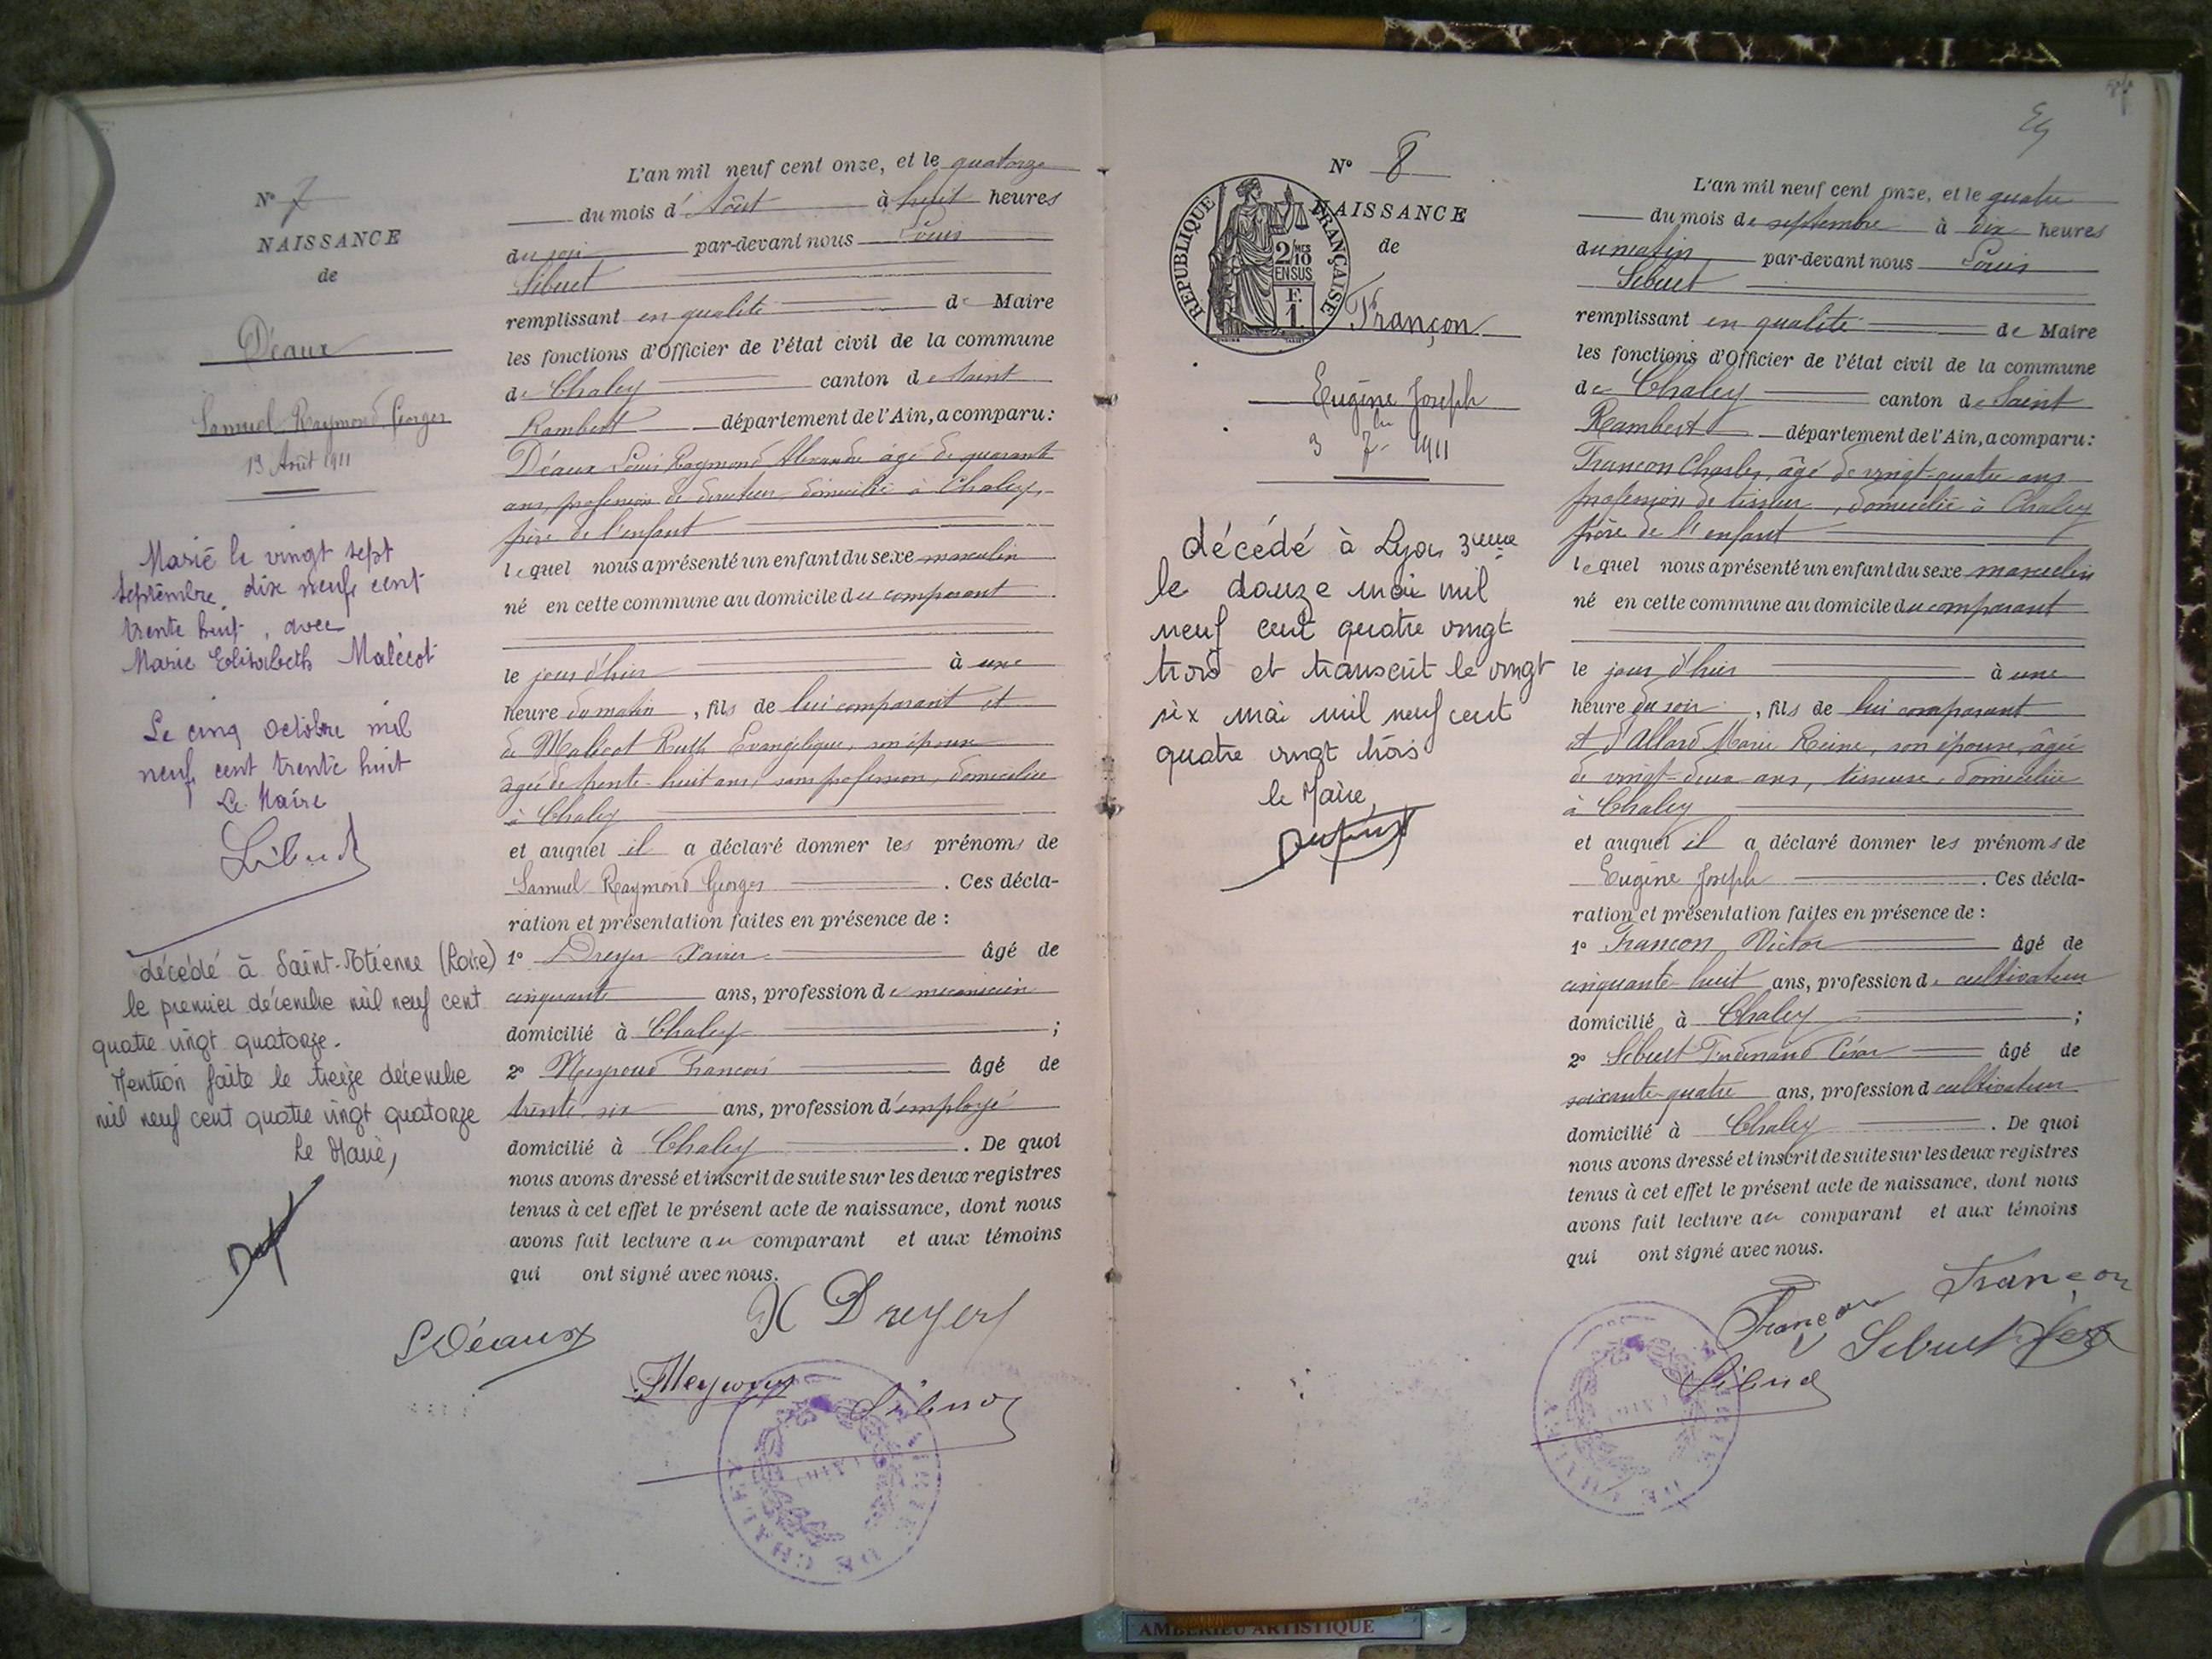 N° 7
NAISSANCE
de
Déaux
Samuel Raymond Georges
13 Août 1911
Marié le vingt sept
septembre dix neuf cent
trente huit, avec
Marie Elisabeth Malécot
Le cinq octobre mil
neuf cent trente huit
Le Maire
décédé à Saint-Etienne (Loire)
le premier décembre mil neuf cent
quatre vingt quatorze.
Mention faite le treize décembre
mil neuf cent quatre vingt quatorze
Le Maire,
L'an mil neuf cent onze, et le quatorze
du mois d'Août à huit heures
du soir par-devant nous Louis
Sibuet
remplissant en qualité de Maire
les fonctions d'Officier de l'état civil de la commune
de Chaley canton de Saint
Rambert département de l'Ain, a comparu:
Déaux Louis Raymond Alexandre âgé de quarante
ans, profession de directeur domicilié à Chaley,
père de l'enfant
lequel nous a présenté un enfant du sexe masculin
né en cette commune au domicile du comparant
le jour d'hier à une
heure du matin, fils de lui comparant et
de Malécot Ruth Evangélique, son épouse
âgée de trente-huit ans, sans profession, domiciliée
à Chaley
et auquel il a déclaré donner les prénoms de
Samuel Raymond Georges. Ces décla-
ration et présentation faites en présence de :
1° Dreyer Xavier âgé de
cinquante ans, profession de mécanicien
domicilié à Chaley ;
2° Meyroud François âgé de
trente-six ans, profession d'employé
domicilié à Chaley. De quoi
nous avons dressé et inscrit de suite sur les deux registres
tenus à cet effet le présent acte de naissance, dont nous
avons fait lecture au comparant et aux témoins
qui ont signé avec nous.
X Dreyer
L Déaux
Sibuet
MAIRIE DE CHALEY
(AIN)
N° 8
NAISSANCE
de
REPUBLIQUE FRANÇAISE
2/10 MES
EN SUS
F.
1.
Françon
Eugène Joseph
3 7bre 1911
décédé à Lyon 3eme
le douze mai mil
neuf cent quatre vingt
trois et transcrit le vingt
six mai mil neuf cent
quatre vingt trois
le Maire,
L'an mil neuf cent onze, et le quatre
du mois de septembre à dix heures
du matin par-devant nous Louis
Sibuet
remplissant en qualité de Maire
les fonctions d'Officier de l'état civil de la commune
de Chaley canton de Saint
Rambert département de l'Ain, a comparu:
Françon Charles, âgé de vingt-quatre ans
profession de tisseur, domicilié à Chaley
père de l'enfant
lequel nous a présenté un enfant du sexe masculin
né en cette commune au domicile du comparant
le jour d'hier à une
heure du soir, fils de lui comparant
et d'Allard Marie Reine, son épouse, âgée
de vingt-deux ans, tisseuse, domiciliée
à Chaley
et auquel il a déclaré donner les prénoms de
Eugène Joseph. Ces décla-
ration et présentation faites en présence de :
1° Françon Victor âgé de
cinquante-huit ans, profession de cultivateur
domicilié à Chaley ;
2° Sibuet Ferdinand César âgé de
soixante-quatre ans, profession d cultivateur
domicilié à Chaley. De quoi
nous avons dressé et inscrit de suite sur les deux registres
tenus à cet effet le présent acte de naissance, dont nous
avons fait lecture au comparant et aux témoins
qui ont signé avec nous.
Françon
Françon
Sibuet
Sibuet
AMBERIEU ARTISTIQUE